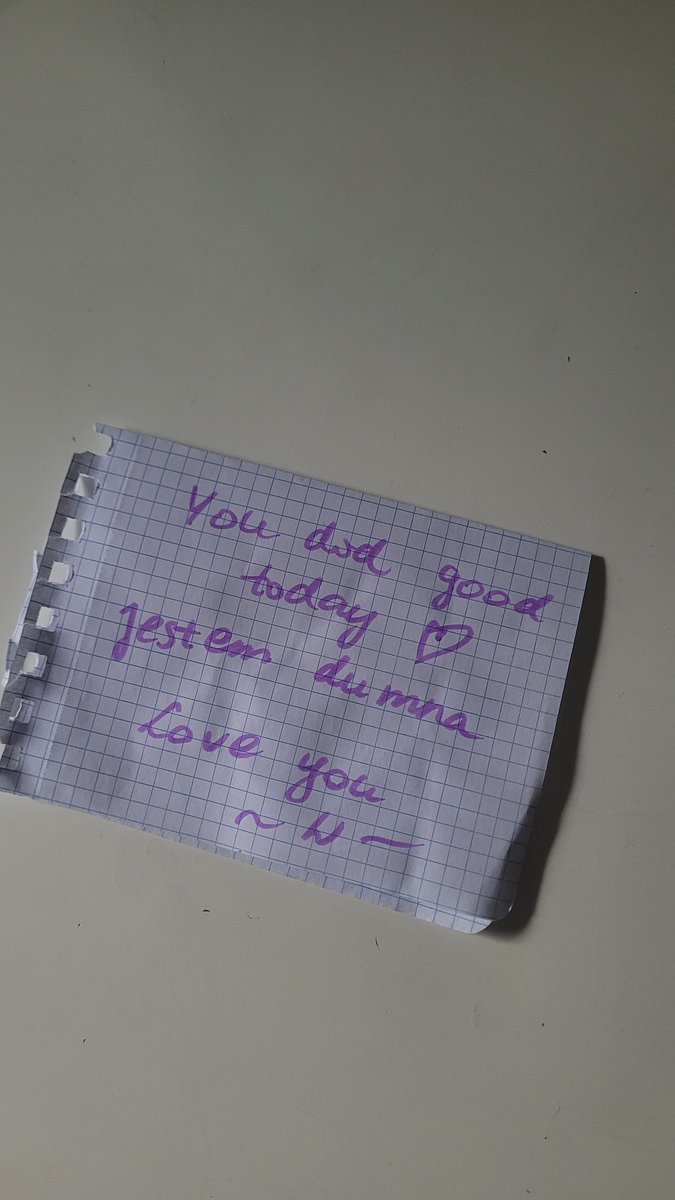 You did good
today ♡
jestem dumna
Love you
~ N ~